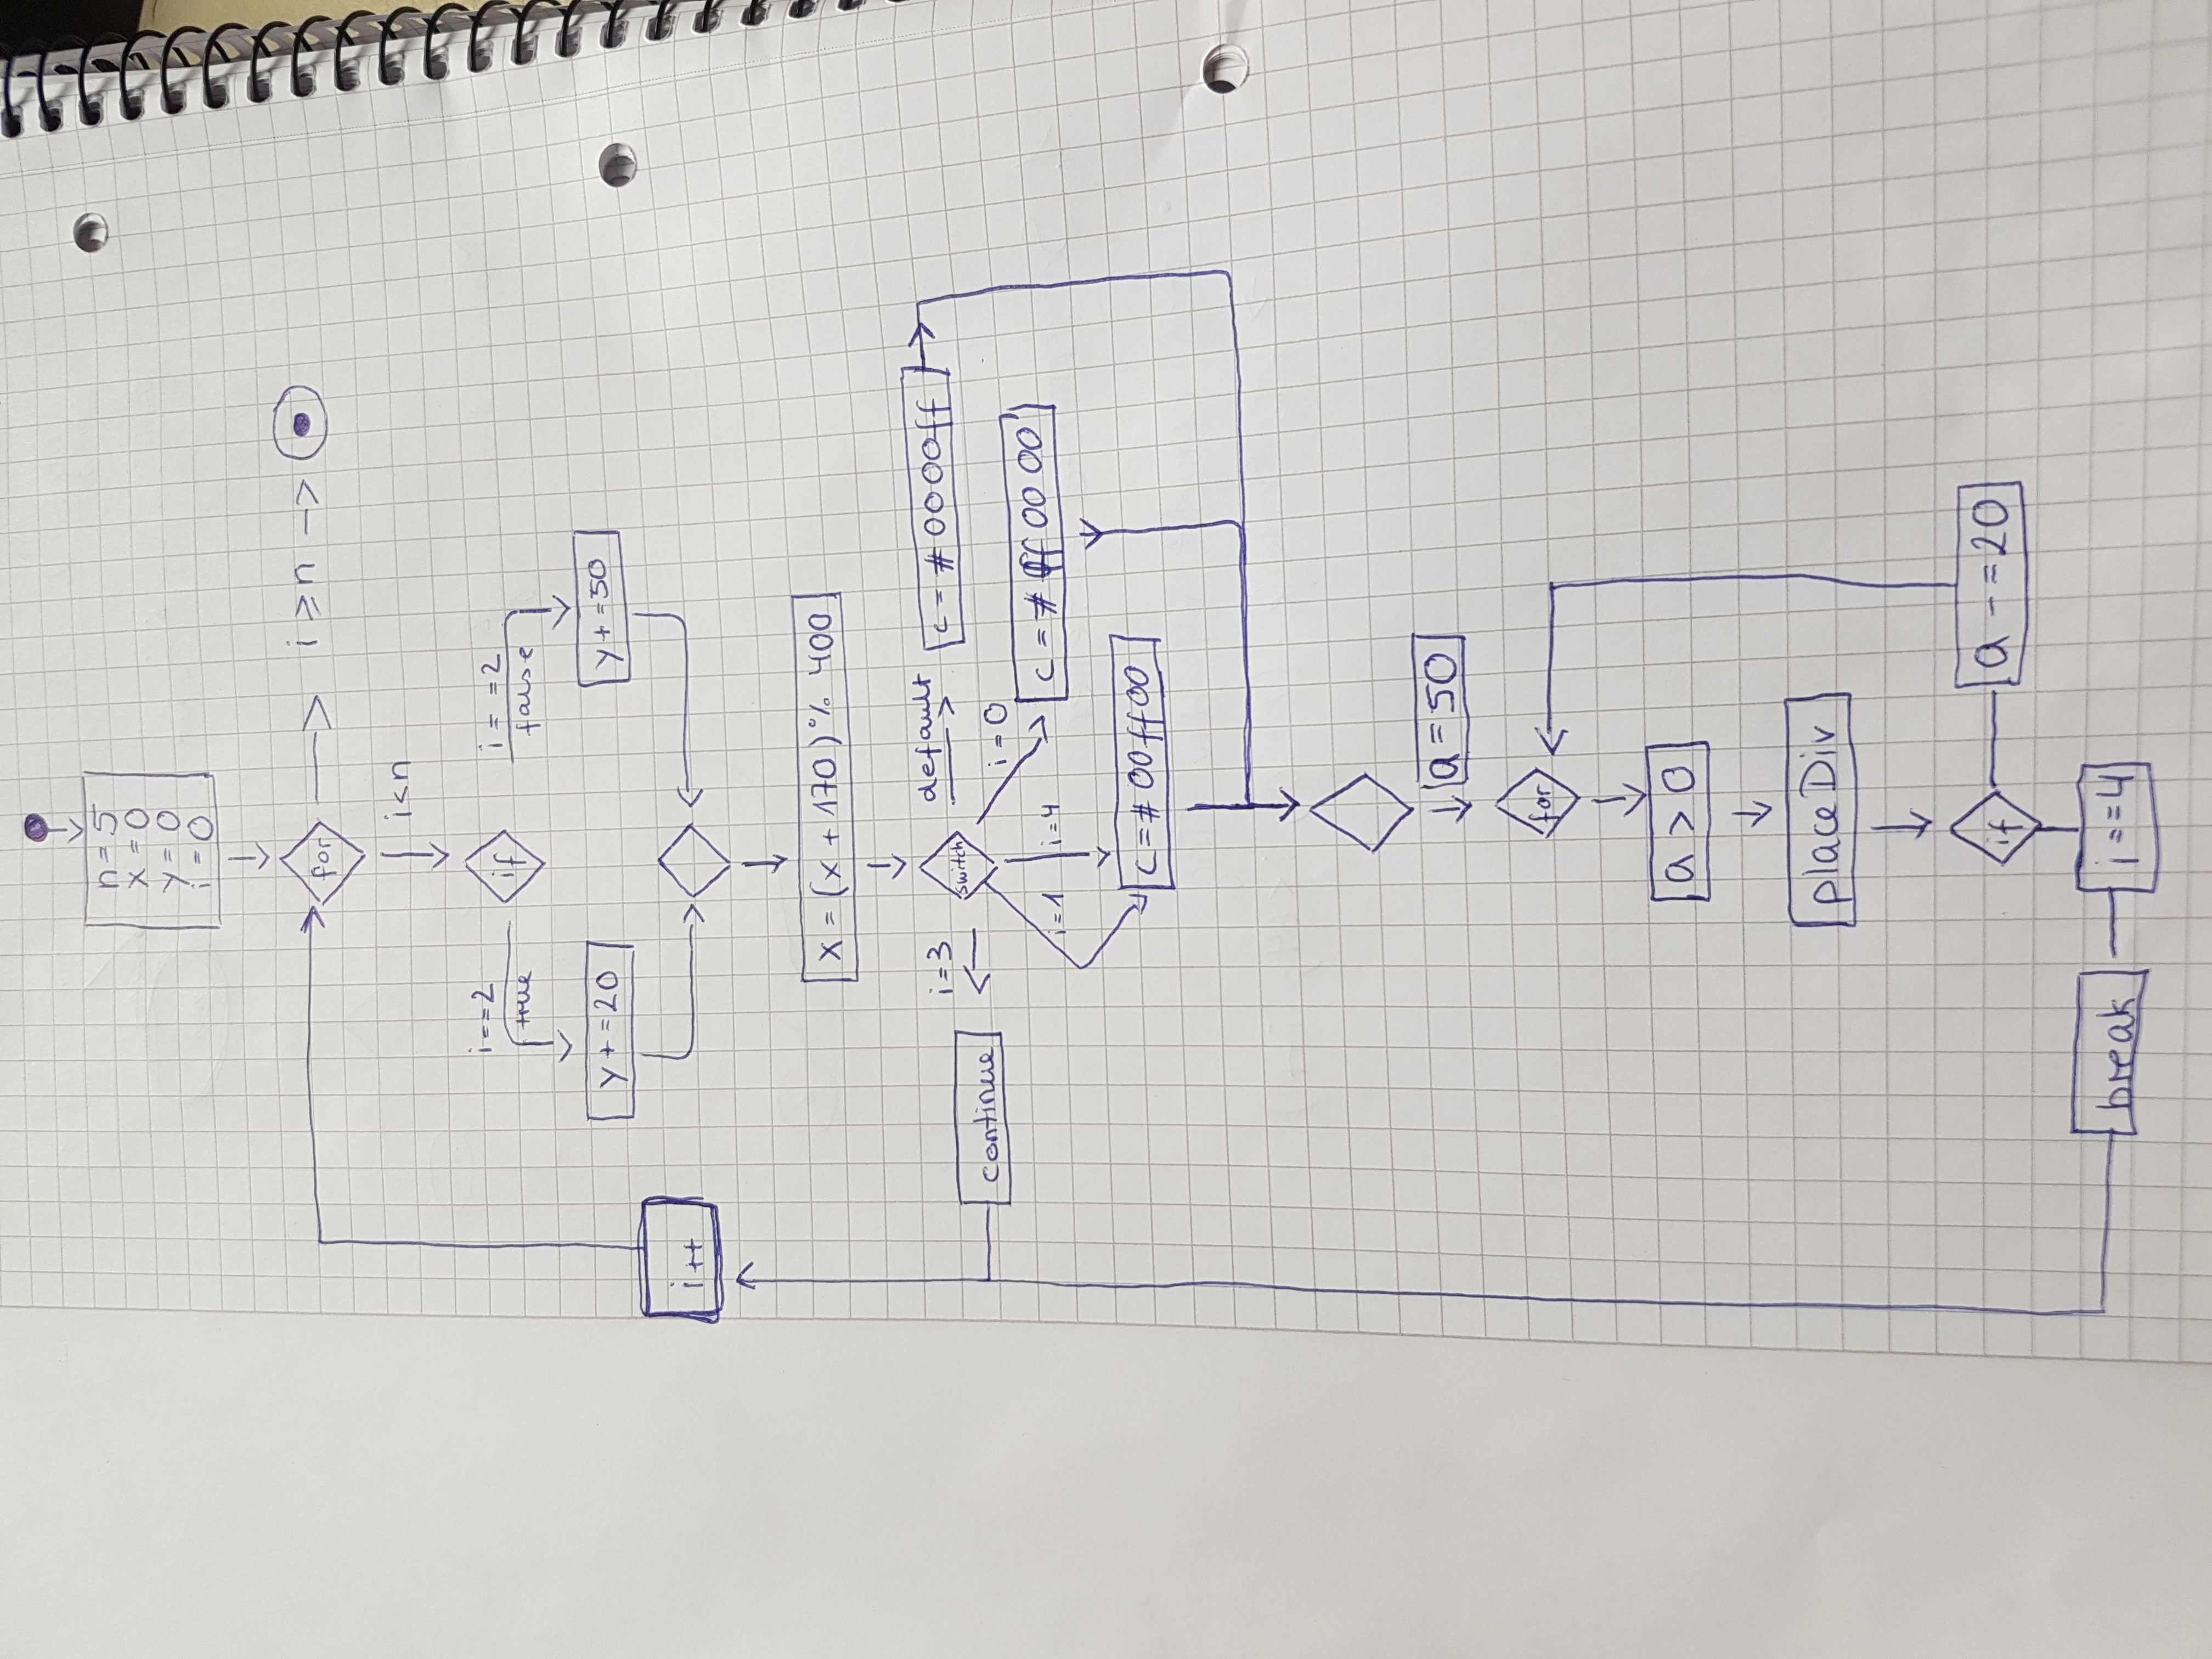 n = 5
x = 0
y = 0
i = 0
for
i ≥ n
i < n
i == 2
true
if
i = = 2
false
y + = 20
y + = 50
i ++
x = (x + 170) % 400
i = 3
switch
default
c = # 0000ff
continue
i = 0
c = # ff 00 00'
i = 1
i = 4
c = # 00ff00
a = 50
for
a > 0
placeDiv
if
a - = 20
break
i == 4